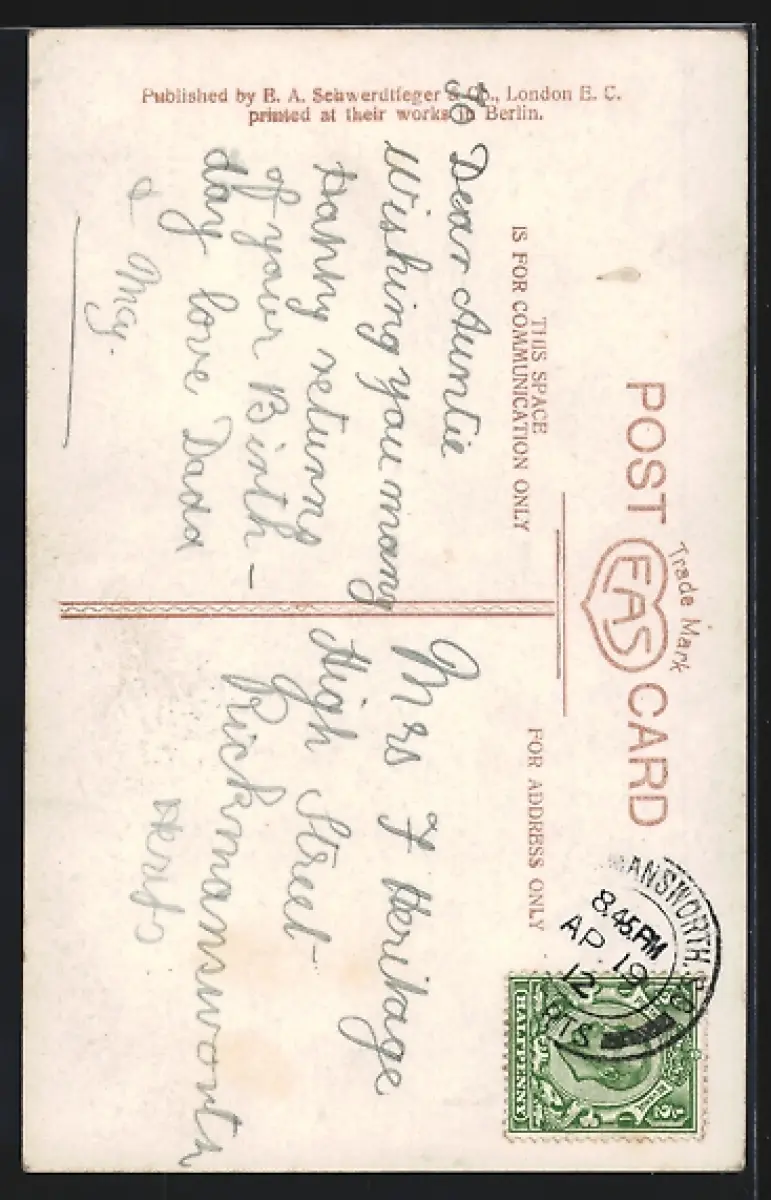 Published by E. A. Schwerdtfeger & Co., London E. C.
printed at their works in Berlin.
POST CARD
Trade Mark
EAS
THIS SPACE
IS FOR COMMUNICATION ONLY
FOR ADDRESS ONLY
Dear Auntie
Wishing you many
Happy returns
of your Birth-
day love Dada
& May.
Mrs F Heritage
High Street
Rickmansworth
Herts
MANSWORTH. S.O
8.45 PM
AP 19
12
RTS
HALFPENNY